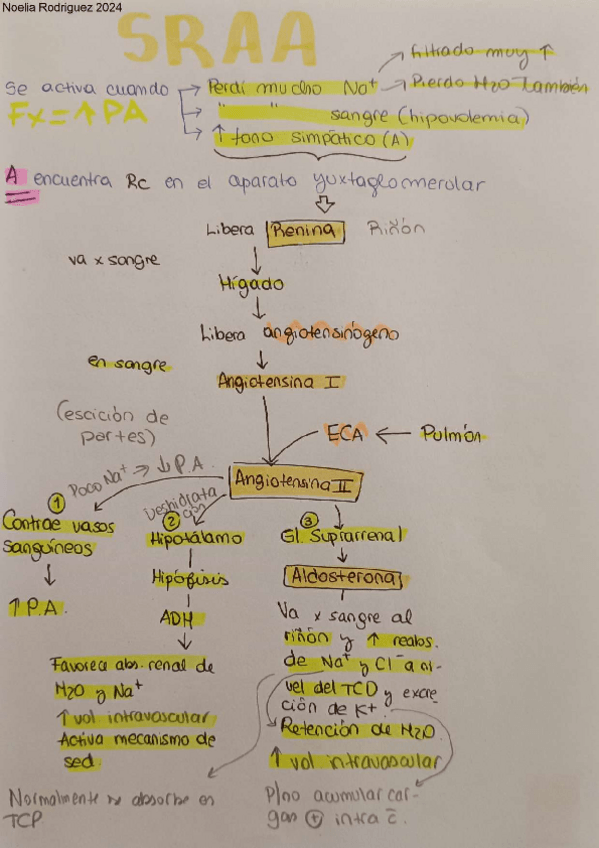 Noelia Rodriguez 2024
SRAA
filtrado muy ↑
Se activa cuando → Perdí mucho Na+ → Pierdo H2O También
Fx = ↑ PA
→ " " sangre (hipovolemia)
→ ↑ tono simpático (A)
A encuentra Rc en el aparato yuxtaglomerular
Libera Renina Riñón
va x sangre
Hígado
Libera angiotensinógeno
en sangre
Angiotensina I
(escición de
partes)
ECA ← Pulmón
Poco Na+ → ↓ P.A.
Angiotensina II
Deshidrata
ción
1
Contrae vasos
sanguíneos
↑ P.A.
2
Hipotálamo
Hipófisis
ADH
Favorece abs. renal de
H2O y Na+
↑ vol intravascular
Activa mecanismo de
sed.
3
Gl. Suprarrenal
Aldosterona
Va x sangre al
riñón y ↑ reabs.
de Na+ y Cl- a ni-
vel del TCD y excre
ción de K+
Retención de H2O.
↑ vol intravascular
Normalmente se absorbe en
TCP
P/no acumular car-
gas ⊕ intra c̄.